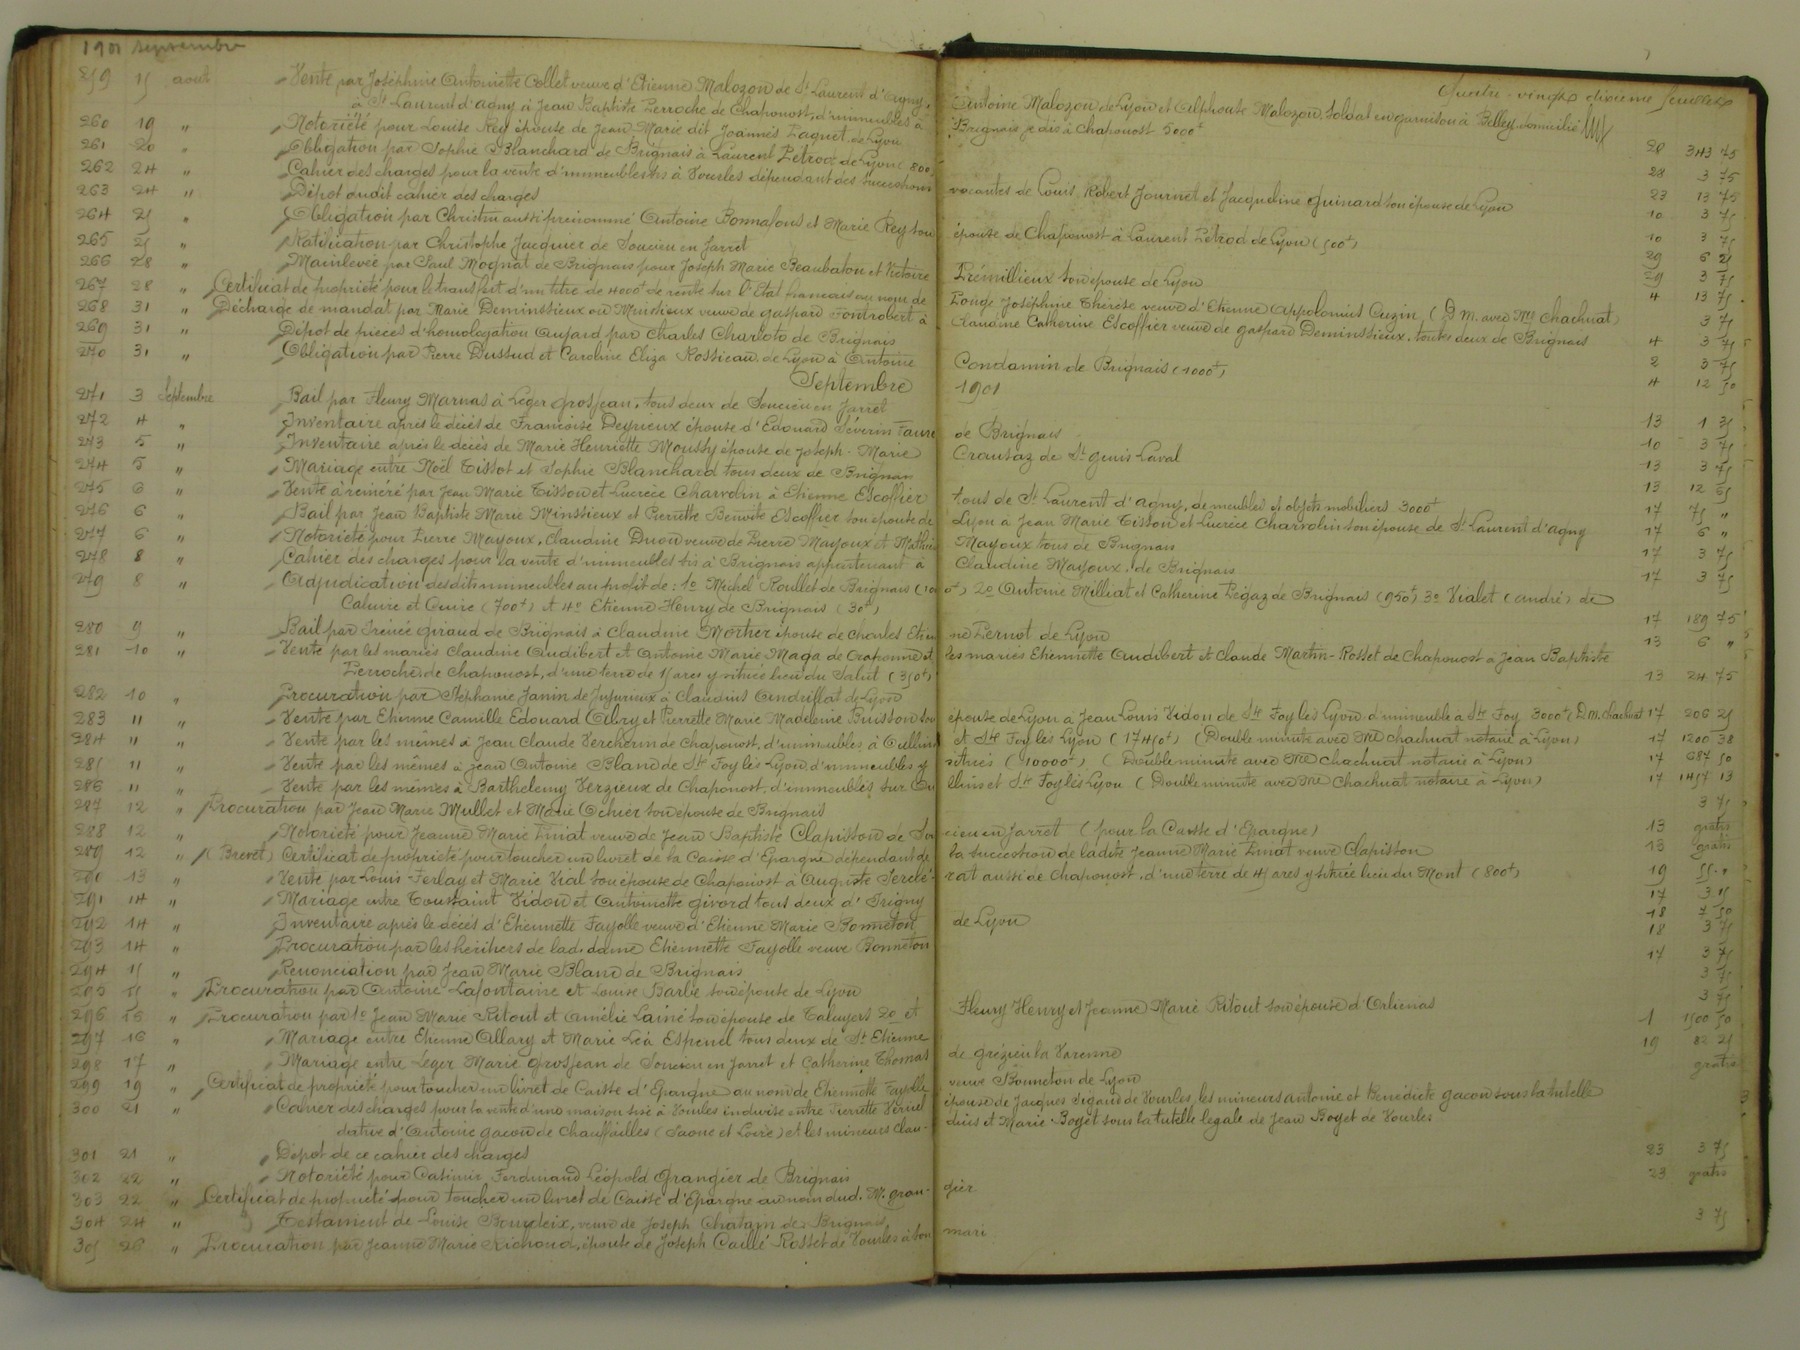 1901 septembre
Quatre-vingts dixième feuillets
259 15 août Vente par Joséphine Antoinette Collet veuve d'Etienne Malozon de St Laurent d'Agny, Antoine Malozon de Lyon et Alphonse Malozon, soldat en garnison à Belley, domicilié
à St Laurent d'agny à Jean Baptiste Perroche de Chaponost, d'immeubles à Brignais je dis à Chaponost 5000f 20 343 75
260 19 " Notoriété pour Louise Rey épouse de Jean Marie dit Joannès Paquet de Lyon 28 3 75
261 20 " Obligation par Sophie Blanchard de Brignais à Laurent Pétrod de Lyon (800 23 13 75
262 24 " Cahier des charges pour la vente d'immeubles sis à Vourles dépendant des successions vacantes de Louis Robert Journet et Jacqueline Guinard son épouse de Lyon 10 3 75
263 24 " Dépot dudit cahier des charges 10 3 75
264 25 " Obligation par Christin aussi prénommé Antoine Bonnafous et Marie Rey son épouse de Chaponost à Laurent Pétrod de Lyon (500f) 29 6 25
265 25 " Ratification par Christophe Jacquier de Soucieu en Jarret 29 3 75
266 28 " Mainlevée par Paul Mognat de Brignais pour Joseph Marie Beaubaton et Victoire Prémillieux son épouse de Lyon 4 13 75
267 28 " Certificat de propriété pour le transfert d'un titre de 4000f de rente sur l'Etat français au nom de Louise Joséphine Thérèse veuve d'Etienne Appolonius Cuzin (D M. avec Me Chachuat) 3 75
268 31 " Décharge de mandat par Marie Deminssieux ou Minssieux veuve de Gaspard Fontrobert à Claudine Catherine Escoffier veuve de Gaspard Deminssieux, toutes deux de Brignais 4 3 75
269 31 " Dépot de pièces d'homologation Aujard par Charles Charloto de Brignais 2 3 75
270 31 " Obligation par Pierre Dussud et Caroline Eliza Rossieau de Lyon à Antoine Condamin de Brignais (1000f) 4 12 50
Septembre 1901
271 3 Septembre Bail par Fleury Marnas à Léger Grosjean, tous deux de Soucieu en Jarret 13 1 35
272 4 " Inventaire après le décès de Françoise Deyrieux épouse d'Edouard Séverin Faure de Brignais 10 3 75
273 5 " Inventaire après le décès de Marie Henriette Moussy épouse de Joseph-Marie Crousaz de St Genis Laval 13 3 75
274 5 " Mariage entre Noël Tissot et Sophie Blanchard tous deux de Brignais 13 12 65
275 6 " Vente à réméré par Jean Marie Tisson et Lucrèce Charvolin à Etienne Escoffier tous de St Laurent d'agny, de meubles et objets mobiliers 3000f 17 75 "
276 6 " Bail par Jean Baptiste Marie Minssieux et Pierrette Benoite Escoffier son épouse de Lyon à Jean Marie Tisson et Lucrèce Charvolin son épouse de St Laurent d'agny 17 6 "
277 6 " Notoriété pour Pierre Mayoux, Claudine Duon veuve de Pierre Mayoux et Mathieu Mayoux tous de Brignais 17 3 75
278 8 " Cahier des charges pour la vente d'immeubles sis à Brignais appartenant à Claudine Mayoux, de Brignais 17 3 75
279 8 " Adjudication desdits immeubles au profit de : 1o Michel Roullet de Brignais (100f) 2o Antoine Milliat et Catherine Légaz de Brignais (950f) 3o Vialet (andré) de
Caluire et Cuire (700f) et 4o Etienne Henry de Brignais (30f) 17 189 75
280 9 " Bail par Irénée Giraud de Brignais à Claudine Mortier épouse de Charles Etienne Pernot de Lyon 13 6 "
281 10 " Vente par les mariés Claudine Audibert et Antoine Marie Maga de Craponne et les mariés Etiennette Audibert et Claude Martin-Rosset de Chaponost à Jean Baptiste
Perroche de Chaponost, d'une terre de 15 ares y située lieu du Salut (350f) 13 24 75
282 10 " Procuration par Stéphanie Janin de Jujurieux à Claudius Andrillat de Lyon
283 11 " Vente par Etienne Camille Edouard Albry et Pierrette Marie Madeleine Buisson son épouse de Lyon à Jean Louis Vidon de Ste Foy lès Lyon d'immeuble à Ste Foy 3000f (D m. Chachuat 17 206 25
284 11 " Vente par les mêmes à Jean Claude Vercherin de Chaponost, d'immeubles à Oullins et Ste Foy lès Lyon (17450f) (Double minute avec Me Chachuat notaire à Lyon) 17 1200 38
285 11 " Vente par les mêmes à Jean Antoine Bland de Ste Foy lès Lyon d'immeubles y situés (10000f) (Double minute avec Me Chachuat notaire à Lyon) 17 687 50
286 11 " Vente par les mêmes à Barthelemy Verzieux de Chaponost, d'immeubles sur Oullins et Ste Foy lès Lyon (Double minute avec Me Chachuat notaire à Lyon) 17 1457 13
287 12 " Procuration par Jean Marie Mullet et Marie Ochier son épouse de Brignais 3 75
288 12 " Notoriété pour Jeanne Marie Piniat veuve de Jean Baptiste Clapisson de Soucieu en Jarret (pour la Caisse d'Epargne) 13 gratis
289 12 " (Brevet) Certificat de propriété pour toucher un livret de la Caisse d'Epargne dépendant de la succession de ladite Jeanne Marie Piniat veuve Clapisson 13 gratis
291 13 " Vente par Louis Ferlay et Marie Vial son épouse de Chaponost à Auguste Perclérat aussi de Chaponost, d'une terre de 45 ares y située lieu du Mont (800f) 19 55 "
291 14 " Mariage entre Toussaint Vidon et Antoinette Givord tous deux d'Irigny 17 3 15
292 14 " Inventaire après le décès d'Etiennette Fayolle veuve d'Etienne Marie Bonneton de Lyon 18 7 50
293 14 " Procuration par les héritiers de lad. dame Etiennette Fayolle veuve Bonneton 18 3 75
294 15 " Renonciation par Jean Marie Bland de Brignais 17 3 75
295 15 " Procuration par Antoine Lafontaine et Louise Barbe son épouse de Lyon 3 75
296 16 " Procuration par 1o Jean Marie Ritout et Amélie Lainé son épouse de Taluyers 2o et Fleury Henry et Jeanne Marie Ritout son épouse d'Orliénas 3 75
297 16 " Mariage entre Etienne Allary et Marie Léa Espenel tous deux de St Etienne 1 1500 50
298 17 " Mariage entre Léger Marie Grosjean de Soucieu en Jarret et Catherine Thomas de Grézieu la Varenne 19 82 25
299 19 " Certificat de propriété pour toucher un livret de Caisse d'Epargne au nom de Etiennette Fayolle veuve Bonneton de Lyon gratis
300 21 " Cahier des charges pour la vente d'une maison sise à Vourles indivise entre Pierrette Vernet épouse de Jacques Sigaud de Vourles, les mineurs Antoine et Bénédicte Gacon sous la tutelle
dative d'Antoine Gacon de Chauffailles (Saone et Loire) et les mineurs Claudius et Marie Boyet sous la tutelle légale de Jean Boyet de Vourles
301 21 " Dépot de ce cahier des charges 23 3 75
302 22 " Notoriété pour Casimir Ferdinand Léopold Grangier de Brignais 23 gratis
303 22 " Certificat de propriété pour toucher un livret de Caisse d'Epargne au nom dud. M. Grangier
304 24 " Testament de Louise Bourdeix, veuve de Joseph Chatain de Brignais 3 75
305 26 " Procuration par Jeanne Marie Richoud, épouse de Joseph Caillé-Rosset de Vourles à son mari